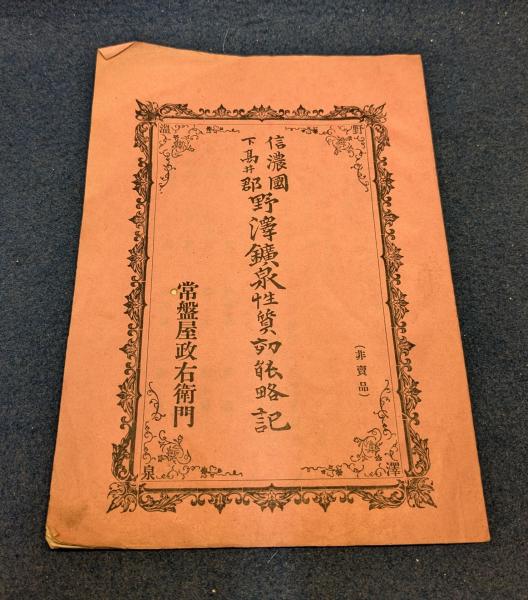 信濃國
下髙井郡
野澤鑛泉性質功能略記
(非賣品)
常盤屋政右衛門
野
澤
温
泉